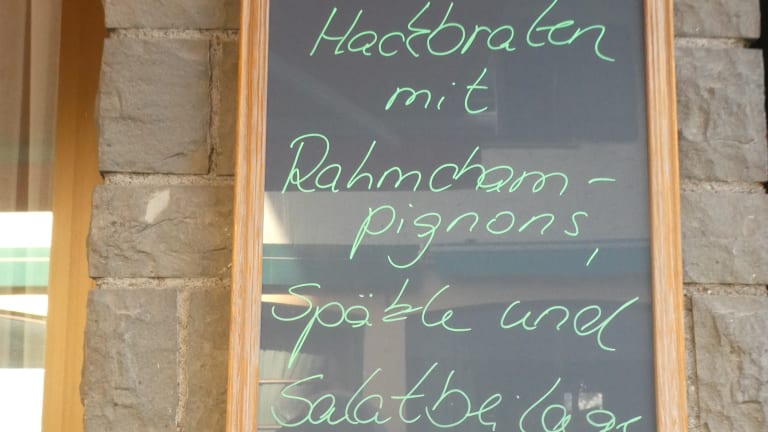 Hackbraten
mit
Rahmcham-
pignons,
Spätzle und
Salatbeilage